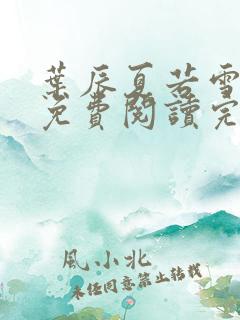 葉辰夏若雪
免費閱讀完
風小北
未經同意禁止轉載